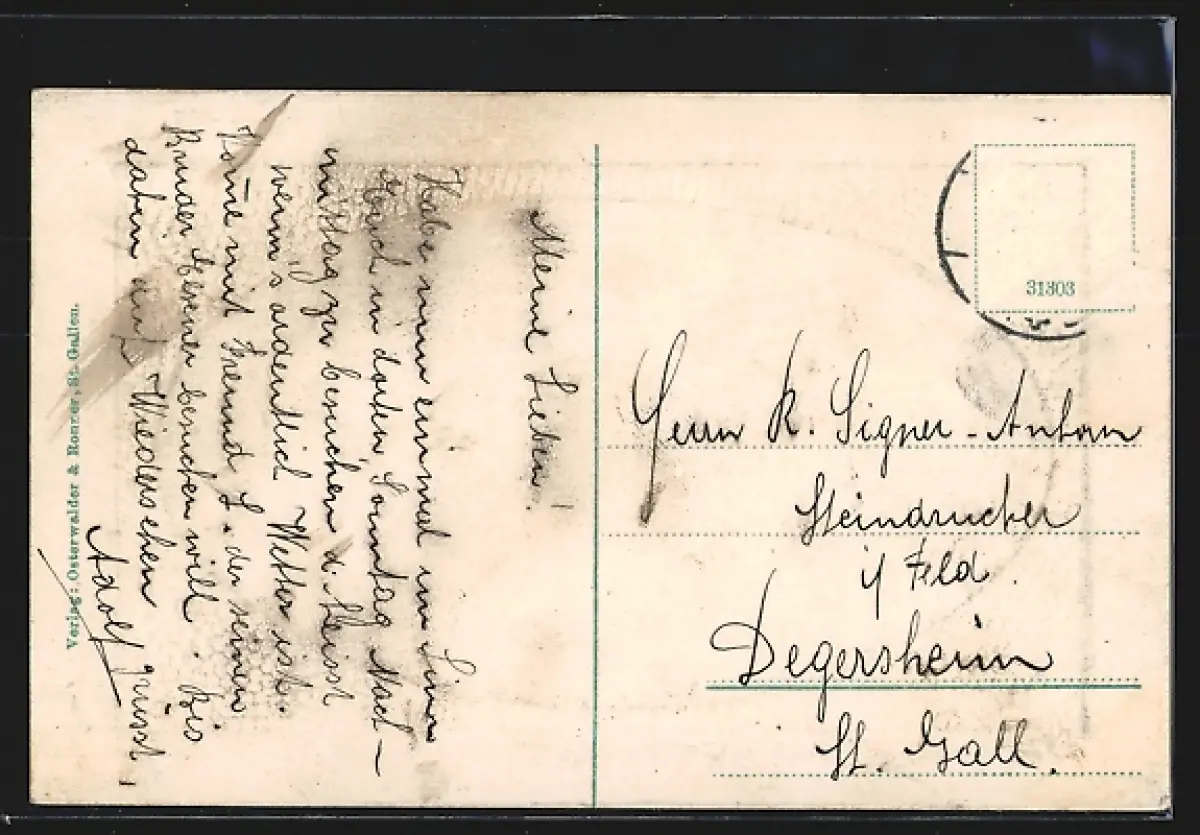 Meine Lieben!
Habe nun einmal im Sinn
Euch in dortn Sonntag Nach-
mittag zu besuchen d. heisst
wenn's ordentlich Wetter ist.
Kom̅e mit Freund L. der seinen
Bruder besuchen will. Bis
dahin auf Wiedersehen grüsst,
Adolf
Verlag: Osterwalder & Ronner, St. Gallen.
31303
Herrn K. Signer-Anhorn
Steindrucker
i/ Feld.
Degersheim
St. Gall.